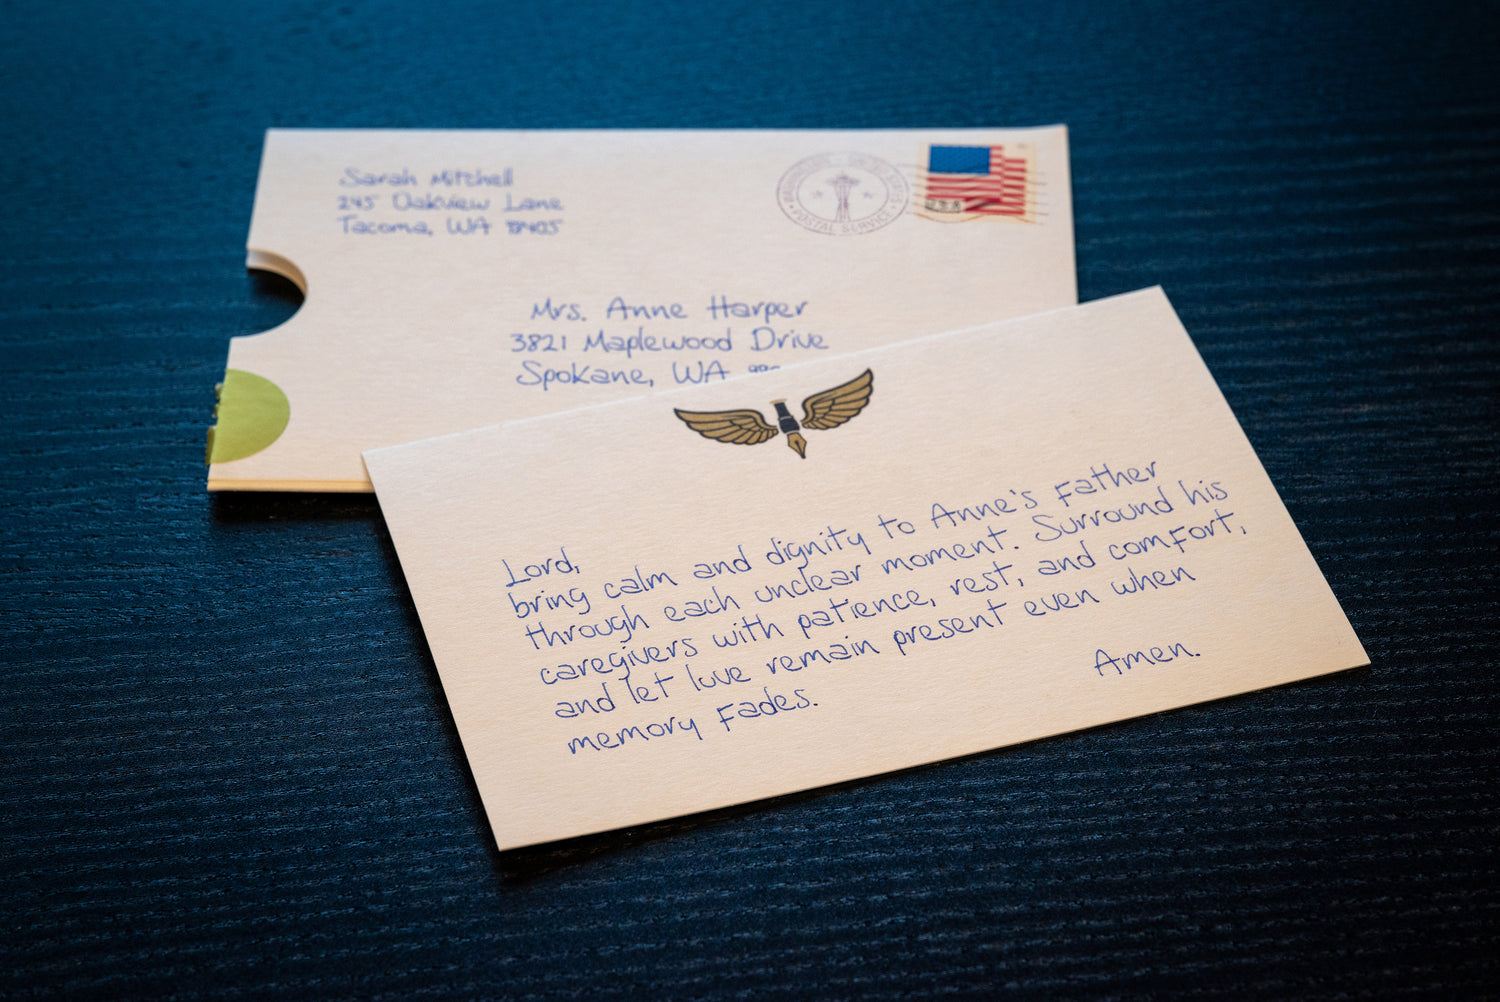 Sarah Mitchell
245 Oakview Lane
Tacoma, WA
WASHINGTON
POSTAL SERVICE
USA
Mrs. Anne Harper
3821 Maplewood Drive
Spokane, WA
Lord,
bring calm and dignity to Anne's Father
through each unclear moment. Surround his
caregivers with patience, rest, and comfort,
and let love remain present even when
memory fades.
Amen.